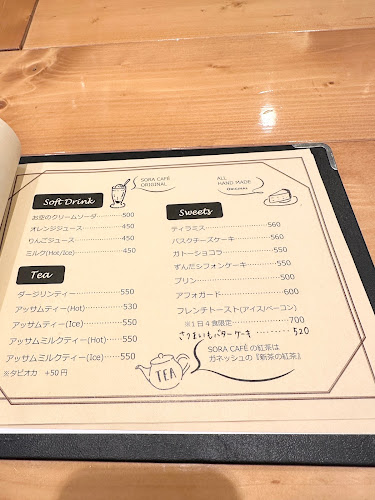 SORA CAFÉ
ORIGINAL
Soft Drink
お空のクリームソーダ………500
オレンジジュース…………450
りんごジュース……………450
ミルク(Hot/Ice)……………450
Tea
ダージリンティー…………550
アッサムティー(Hot)………530
アッサムティー(Ice)………550
アッサムミルクティー(Hot)…550
アッサムミルクティー(Ice)…550
※タピオカ +50円
ALL
HAND MADE
Dessert
Sweets
ティラミス…………………560
バスクチーズケーキ…………560
ガトーショコラ……………550
ずんだシフォンケーキ………550
プリン………………………500
アフォガード………………600
フレンチトースト(アイス/ベーコン)
※1日4食限定………………700
さつまいもバターケーキ………520
TEA
SORA CAFÉ の紅茶は
ガネッシュの『新茶の紅茶』